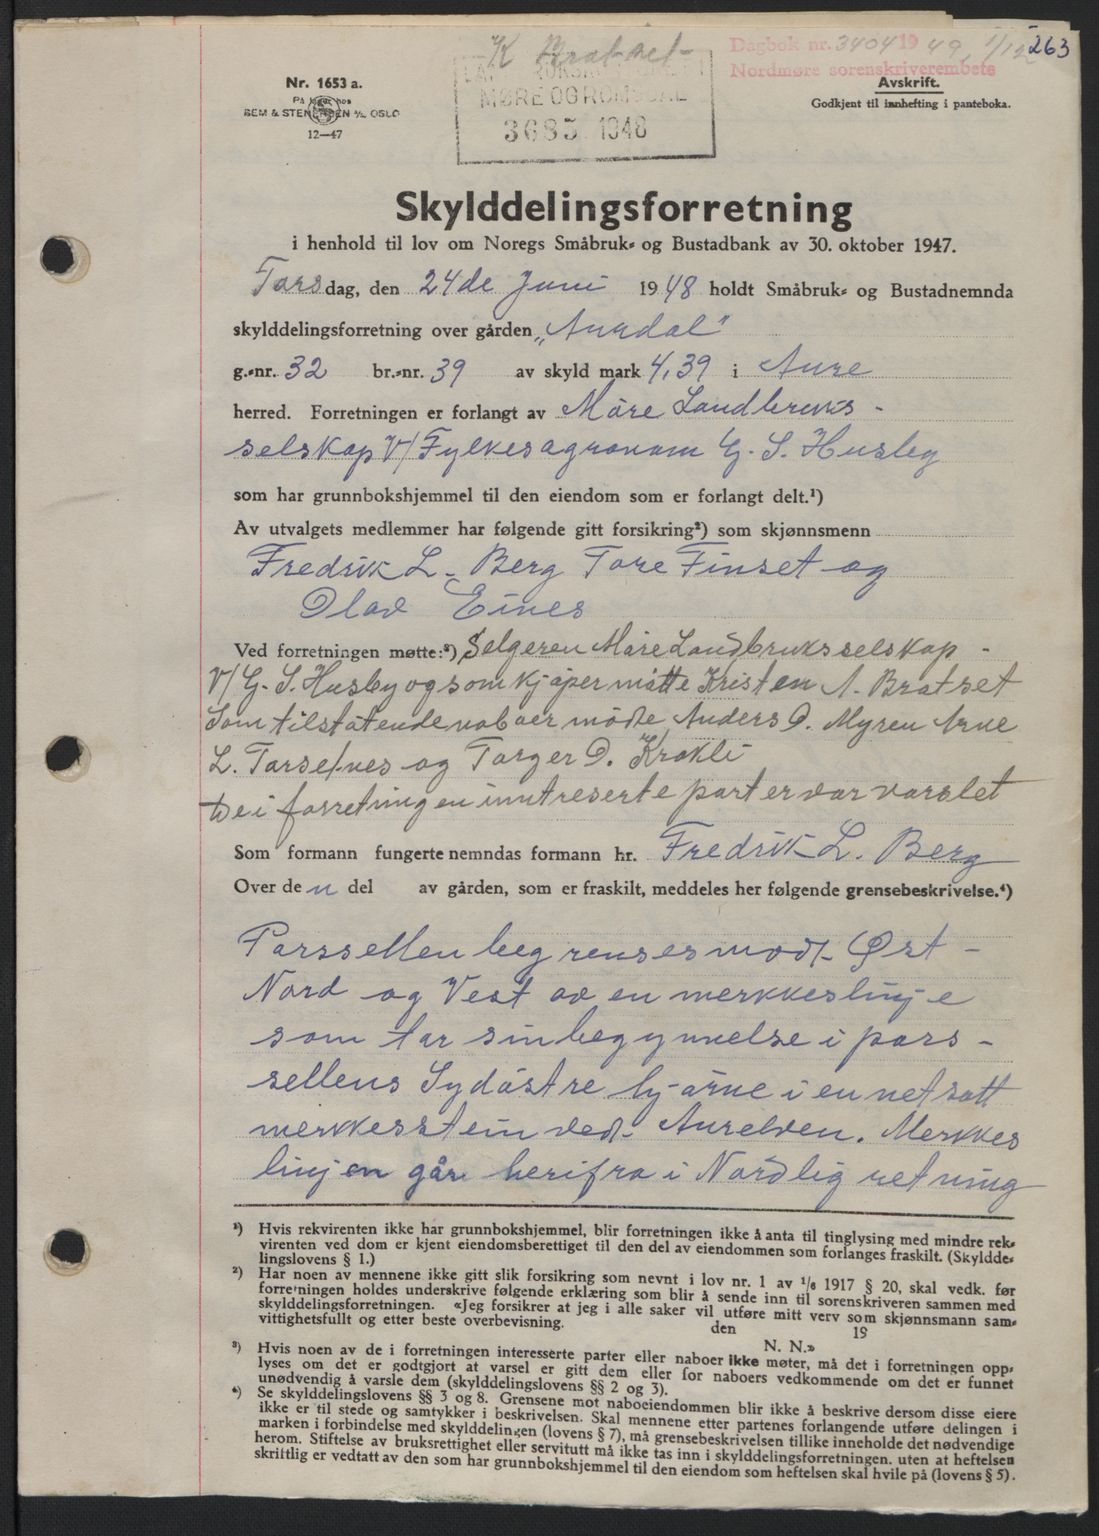 K Bratset -
Dagbok nr. 3404 19 49, 1/12 263
Nordmøre sorenskriverembete
Nr. 1653 a.
På lager hos
SEM & STENERSEN A/S, OSLO
12—47
MØRE OG ROMSDAL
3685. 1948
Avskrift.
Godkjent til innhefting i panteboka.
Skylddelingsforretning
i henhold til lov om Noregs Småbruk- og Bustadbank av 30. oktober 1947.
Torsdag, den 24de Juni 1948 holdt Småbruk- og Bustadnemnda
skylddelingsforretning over gården „Auredal"
g.-nr. 32 br.-nr. 39 av skyld mark 4,39 i Aure
herred. Forretningen er forlangt av Möre Landbruks -
selskap V/ Fylkesagronom G. S. Husby
som har grunnbokshjemmel til den eiendom som er forlangt delt.¹)
Av utvalgets medlemmer har følgende gitt forsikring²) som skjønnsmenn
Fredrik L. Berg Tore Finset og
Olav Eines
Ved forretningen møtte:³) Selgeren Möre Landbruksselskap -
V/ G. S. Husby og som kjöper mötte Kristen A. Bratset
Som tilstötende naboer mödte Anders O. Myren Arne
L. Torsetnes og Torger O. Krokli
De i forretningen inntreserte parter var varslet
Som formann fungerte nemndas formann hr. Fredrik L. Berg
Over den del av gården, som er fraskilt, meddeles her følgende grensebeskrivelse.⁴)
Parssellen begrenses mot Øst -
Nord og Vest av en merkkeslinje
som tar sin begynnelse i pars -
sellens Sydöstre hjörne i en netsatt
merkkesstein ved Aurelven. Merkkes
linjen går herifra i Nordlig retning
¹) Hvis rekvirenten ikke har grunnbokshjemmel, blir forretningen ikke å anta til tinglysing med mindre rek-
virenten ved dom er kjent eiendomsberettiget til den del av eiendommen som forlanges fraskilt. (Skyldde-
lingslovens § 1.)
²) Har noen av mennene ikke gitt slik forsikring som nevnt i lov nr. 1 av 1/6 1917 § 20, skal vedk. før
forretningen holdes underskrive følgende erklæring som blir å sende inn til sorenskriveren sammen med
skylddelingsforretningen. «Jeg forsikrer at jeg i alle saker vil utføre mitt verv som skjønnsmann sam-
vittighetsfullt og etter beste overbevisning. den 19
N. N.»
³) Hvis noen av de i forretningen interesserte parter eller naboer ikke møter, må det i forretningen opp-
lyses om det er godtgjort at varsel er gitt dem eller for naboers vedkommende om det er funnet
unødvendig å varsle dem (skylddelingslovens §§ 2 og 3).
⁴) Se skylddelingslovens §§ 3 og 8. Grensene mot naboeiendommen blir ikke å beskrive dersom disse eiere
ikke er til stede og samtykker i beskrivelsen. Skal mennene etter partenes forlangende utføre delingen i
marken i forbindelse med skylddelingen (lovens § 7), må grensebeskrivelsen tillike inneholde det nødvendige
herom. Stiftelse av bruksrettighet eller servitutt må ikke tas inn i skylddelingsforretningen. uten at heftelsen
skriftlig er vedtatt av den som har grunnbokshjemmel til den eiendom som heftelsen skal hvile på (lovens § 5).